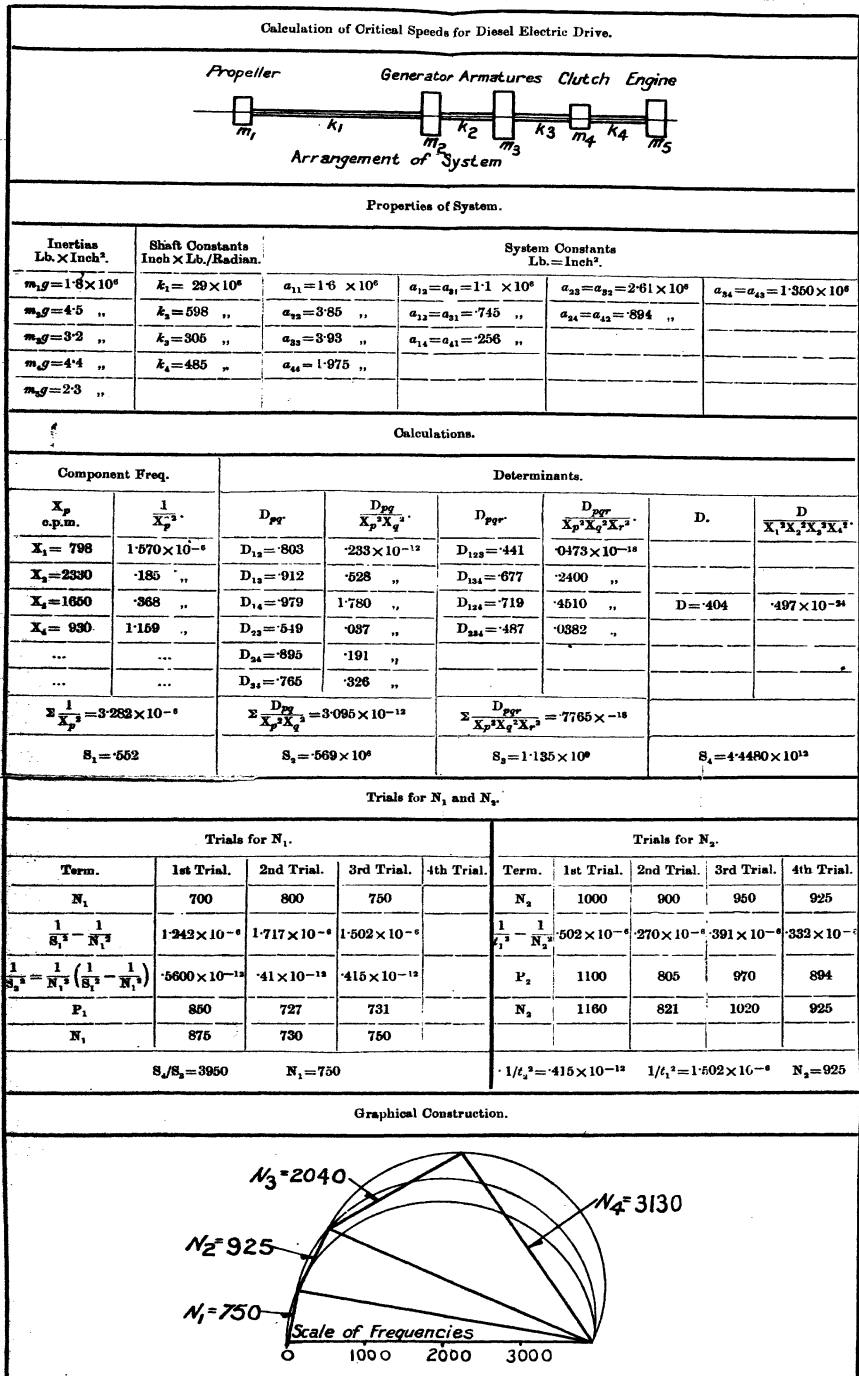 Calculation of Critical Speeds for Diesel Electric Drive.
Propeller Generator Armatures Clutch Engine
m₁ k₁ m₂ k₂ m₃ k₃ m₄ k₄ m₅
Arrangement of System
Properties of System.
Inertias Lb. × Inch². Shaft Constants Inch × Lb./Radian. System Constants Lb.=Inch².
m₁g=1·8×10⁶ k₁= 29×10⁶ a₁₁=1·6 ×10⁶ a₁₂=a₂₁=1·1 ×10⁶ a₂₃=a₃₂=2·61×10⁶ a₃₄=a₄₃=1·350×10⁶
m₂g=4·5 ,, k₂=598 ,, a₂₂=3·85 ,, a₁₃=a₃₁=·745 ,, a₂₄=a₄₂=·894 ,,
m₃g=3·2 ,, k₃=305 ,, a₃₃=3·93 ,, a₁₄=a₄₁=·256 ,,
m₄g=4·4 ,, k₄=485 ,, a₄₄=1·975 ,,
m₅g=2·3 ,,
Calculations.
Component Freq. Determinants.
Xₚ c.p.m. 1/Xₚ². Dpq. Dpq/Xp²Xq². Dpqr. Dpqr/Xp²Xq²Xr². D. D/X₁²X₂²X₃²X₄².
X₁= 798 1·570×10⁻⁶ D₁₂=·803 ·233×10⁻¹² D₁₂₃=·441 ·0473×10⁻¹⁸
X₂=2330 ·185 ,, D₁₃=·912 ·528 ,, D₁₃₄=·677 ·2400 ,,
X₃=1650 ·368 ,, D₁₄=·979 1·780 ,, D₁₂₄=·719 ·4510 ,, D=·404 ·497×10⁻²⁴
X₄= 930 1·159 ,, D₂₃=·549 ·037 ,, D₂₃₄=·487 ·0382 ,,
... ... D₂₄=·895 ·191 ,,
... ... D₃₄=·765 ·326 ,,
Σ 1/Xp²=3·282×10⁻⁶ Σ Dpq/Xp²Xq²=3·095×10⁻¹² Σ Dpqr/Xp²Xq²Xr²=·7765×⁻¹⁸
S₁=·552 S₂=·569×10⁶ S₃=1·135×10⁹ S₄=4·4480×10¹²
Trials for N₁ and N₂.
Trials for N₁. Trials for N₂.
Term. 1st Trial. 2nd Trial. 3rd Trial. 4th Trial. Term. 1st Trial. 2nd Trial. 3rd Trial. 4th Trial.
N₁ 700 800 750 N₂ 1000 900 950 925
1/S₁² − 1/N₁² 1·242×10⁻⁶ 1·717×10⁻⁶ 1·502×10⁻⁶ 1/t₁² − 1/N₂² ·502×10⁻⁶ ·270×10⁻⁶ ·391×10⁻⁶ ·332×10⁻⁶
1/S₂² = 1/N₁² (1/S₁² − 1/N₁²) ·5600×10⁻¹² ·41×10⁻¹² ·415×10⁻¹² P₂ 1100 805 970 894
P₁ 850 727 731 N₂ 1160 821 1020 925
N₁ 875 730 750
S₄/S₃=3950 N₁=750 1/t₂²=·415×10⁻¹² 1/t₁²=1·502×10⁻⁶ N₂=925
Graphical Construction.
N₃=2040
N₄=3130
N₂=925
N₁=750
Scale of Frequencies
0 1000 2000 3000